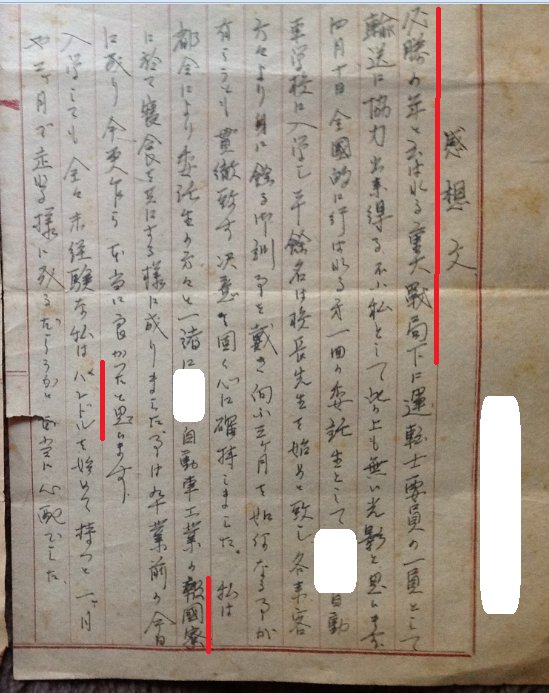 感想文
必勝の年と云はれる重大戰局下に運転士要員の一員として
輸送に協力出来得る不小私として此の上も無い光影と思います
四月十日全國的に行はれる才一回の委託生として 自動
車学校に入学し 餘名は校長先生を始めと致し各来客
方々より身に餘る御訓事を戴き向ふ三ヶ月を如何なる事が
有らうとも貫徹致す決意を固く心に確持しました。私は
都合により委託生の方々と一諸に 自動車工業の報國寮
に於て寝食を共にする様に成りました事は卒業前の今日
に成り今更乍ら本当に良かったと思います
入学しても全々未経験な私はハンドルを始めて持つと一ヶ月
や二ヶ月で走れる様に成るだらうかと 心配でした